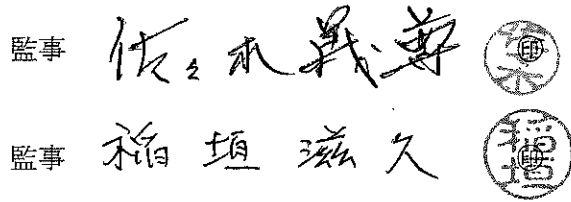 監事 佐々木義尊 ㊞
監事 稲垣滋久 ㊞